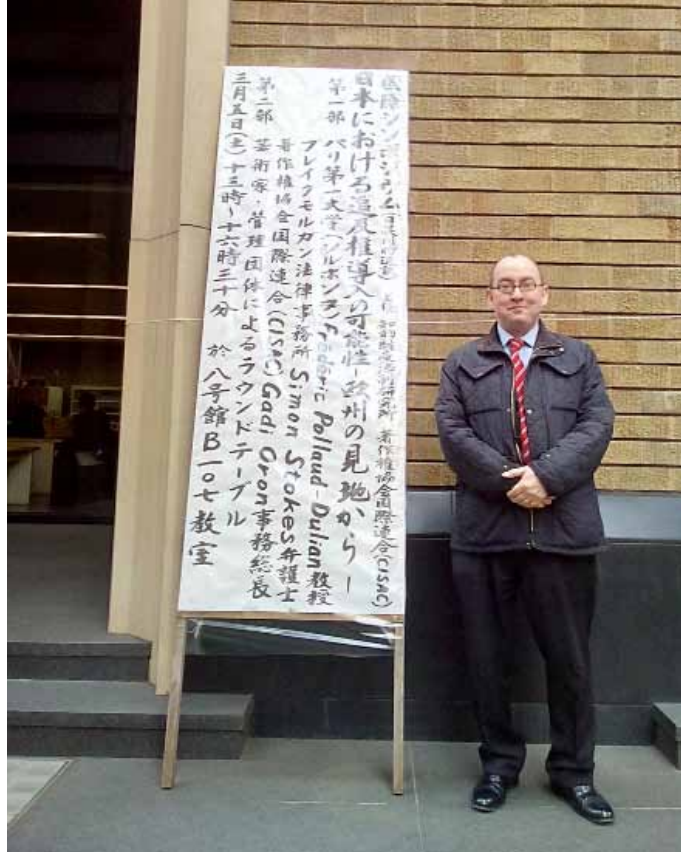 国際シンポジウム 知的財産法制研究所 著作権協会国際連合(CISAC)
日本における追及権導入の可能性ー欧州の見地からー
第一部 パリ第一大学(ソルボンヌ)Frédéric Pollaud-Dulian教授
ブレイクモルガン法律事務所 Simon Stokes弁護士
著作権協会国際連合(CISAC)Gadi Oron事務総長
第二部 芸術家・管理団体によるラウンドテーブル
三月五日(土) 十三時~十六時三十分 於 八号館B一〇七教室